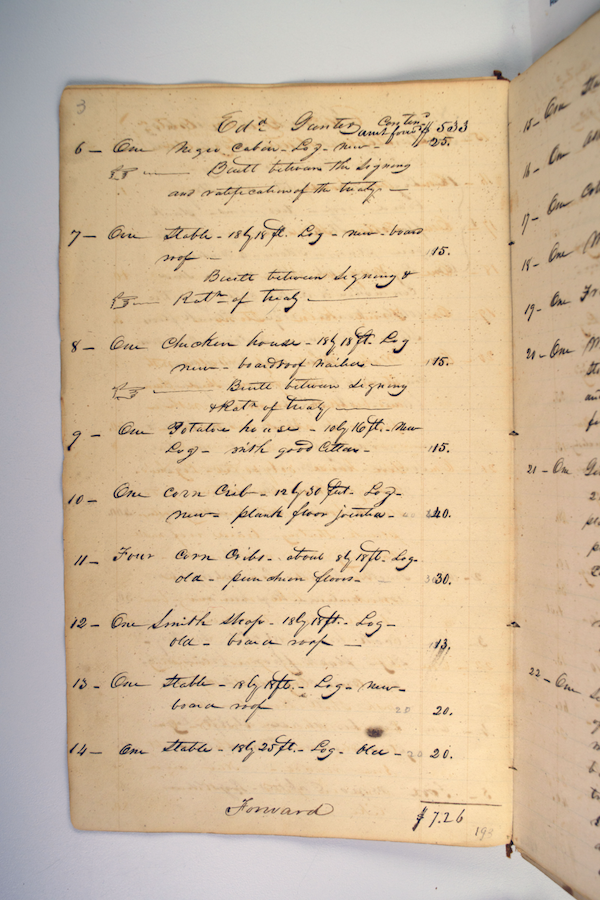 3
Edd Gunter Contind
amt forwd $ 533
6 - One negro cabin - Log - new - 25.
Built between the Signing
and ratification of the treaty -
7 - One Stable - 18 by 18 ft. Log - new - board
roof - 15.
Built between Signing &
Ratn of treaty
8 - One Chicken house - 18 by 18 ft. Log
new - board roof nailed 15.
Built between Signing
& Ratn of treaty
9 - One Potatoe house - 10 by 16 ft. - New
Log - with good Cellar - 15.
10 - One Corn Crib - 12 by 30 feet - Log -
new - plank floor jointed - 40.
11 - Four Corn Cribs - about 8 by 18 ft - Log -
old - puncheon floors - 30.
12 - One Smith Shop - 18 by 18 ft. - Log -
old - board roof - 13.
13 - One Stable - 18 by 18 ft. - Log - new -
board roof 20 20.
14 - One Stable - 18 by 25 ft. - Log - Old - 20.
Forward $ 7.26
193
15 - One
16 - One
17 - One
18 - One
19 - One
20 - One
21 - One
22 - One